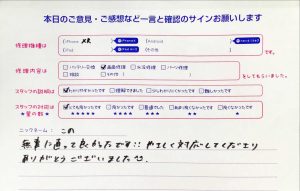 本日のご意見・ご感想など一言と確認のサインお願いします
修理機種は
iPhone XR
Android
iPad
その他
です。
修理内容は
バッテリー交換 画面修理 水没修理 パーツ修理
その他
をしてもらいました。
スタッフの説明は
わかりやすかったです 理解できました 少しわかりにくかったです 難しかったです
スタッフの対応は
★星の数★
とても良かったです 良かったです 普通でした
ニックネーム: この
無事に直って良かったです!! やさしく対応してくださり
ありがとうございました